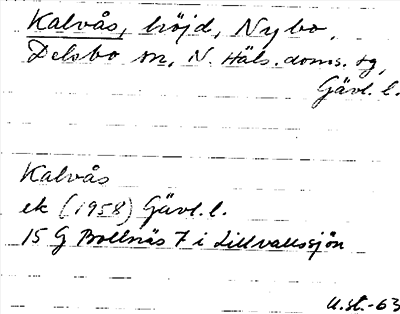 Kalvås, höjd, Nybo,
Delsbo sn, N. Häls. doms. tg,
Gävl. l.
Kalvås
ek (1958) Gävl. l.
15 G Bollnäs 7 i Lillvallssjön
U.st.-63